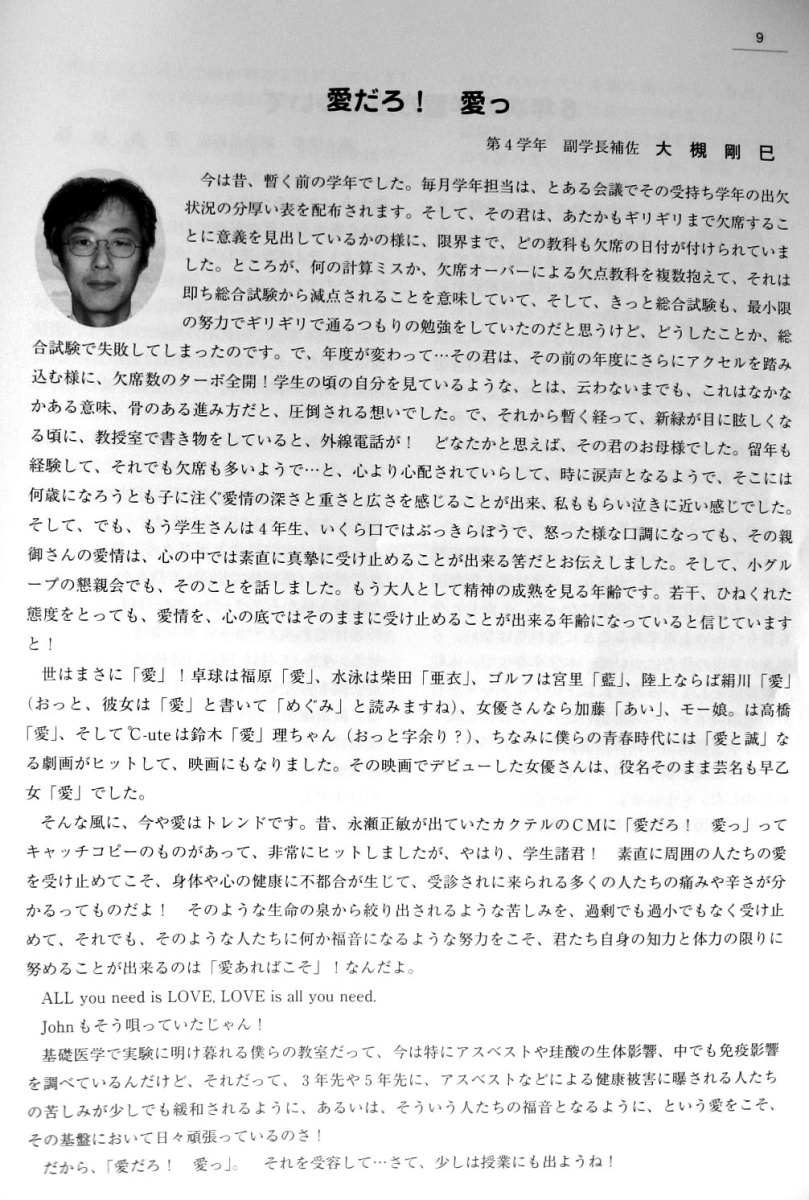 9
愛だろ！　愛っ
第４学年　副学長補佐　大 槻 剛 巳
今は昔、暫く前の学年でした。毎月学年担当は、とある会議でその受持ち学年の出欠
状況の分厚い表を配布されます。そして、その君は、あたかもギリギリまで欠席するこ
とに意義を見出しているかの様に、限界まで、どの教科も欠席の日付が付けられていま
した。ところが、何の計算ミスか、欠席オーバーによる欠点教科を複数抱えて、それは
即ち総合試験から減点されることを意味していて、そして、きっと総合試験も、最小限
の努力でギリギリで通るつもりの勉強をしていたのだと思うけど、どうしたことか、総
合試験で失敗してしまったのです。で、年度が変わって…その君は、その前の年度にさらにアクセルを踏み
込む様に、欠席数のターボ全開！学生の頃の自分を見ているような、とは、云わないまでも、これはなかな
かある意味、骨のある進み方だと、圧倒される想いでした。で、それから暫く経って、新緑が目に眩しくな
る頃に、教授室で書き物をしていると、外線電話が！　どなたかと思えば、その君のお母様でした。留年も
経験して、それでも欠席も多いようで…と、心より心配されていらして、時に涙声となるようで、そこには
何歳になろうとも子に注ぐ愛情の深さと重さと広さを感じることが出来、私ももらい泣きに近い感じでした。
そして、でも、もう学生さんは４年生、いくら口ではぶっきらぼうで、怒った様な口調になっても、その親
御さんの愛情は、心の中では素直に真摯に受け止めることが出来る筈だとお伝えしました。そして、小グル
ープの懇親会でも、そのことを話しました。もう大人として精神の成熟を見る年齢です。若干、ひねくれた
態度をとっても、愛情を、心の底ではそのままに受け止めることが出来る年齢になっていると信じています
と！
世はまさに「愛」！卓球は福原「愛」、水泳は柴田「亜衣」、ゴルフは宮里「藍」、陸上ならば絹川「愛」
（おっと、彼女は「愛」と書いて「めぐみ」と読みますね）、女優さんなら加藤「あい」、モー娘。は高橋
「愛」、そして℃-uteは鈴木「愛」理ちゃん（おっと字余り？）、ちなみに僕らの青春時代には「愛と誠」な
る劇画がヒットして、映画にもなりました。その映画でデビューした女優さんは、役名そのまま芸名も早乙
女「愛」でした。
そんな風に、今や愛はトレンドです。昔、永瀬正敏が出ていたカクテルのＣＭに「愛だろ！　愛っ」って
キャッチコピーのものがあって、非常にヒットしましたが、やはり、学生諸君！　素直に周囲の人たちの愛
を受け止めてこそ、身体や心の健康に不都合が生じて、受診されに来られる多くの人たちの痛みや辛さが分
かるってものだよ！　そのような生命の泉から絞り出されるような苦しみを、過剰でも過小でもなく受け止
めて、それでも、そのような人たちに何か福音になるような努力をこそ、君たち自身の知力と体力の限りに
努めることが出来るのは「愛あればこそ」！なんだよ。
ALL you need is LOVE, LOVE is all you need.
Johnもそう唄っていたじゃん！
基礎医学で実験に明け暮れる僕らの教室だって、今は特にアスベストや珪酸の生体影響、中でも免疫影響
を調べているんだけど、それだって、３年先や５年先に、アスベストなどによる健康被害に曝される人たち
の苦しみが少しでも緩和されるように、あるいは、そういう人たちの福音となるように、という愛をこそ、
その基盤において日々頑張っているのさ！
だから、「愛だろ！　愛っ」。　それを受容して…さて、少しは授業にも出ようね！